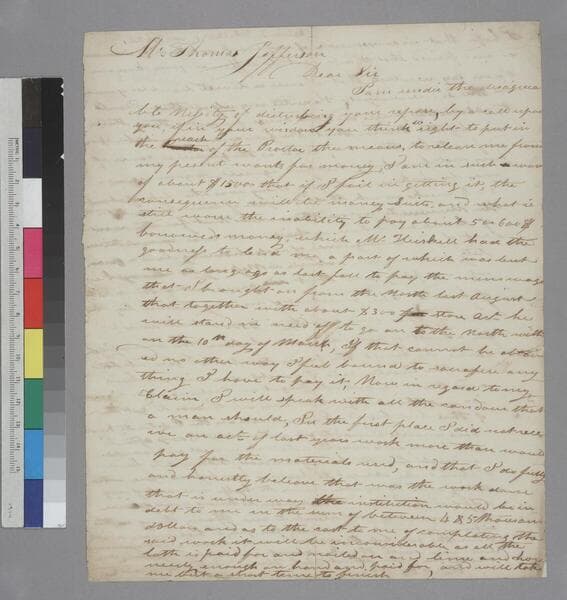 Mr Thomas Jefferson
Dear Sir
I am under the disagrea
ble necessity of disturbing your repose, by a call upon
you, if in your wisdom you think it right to put in
the hands of the Proctor the means, to relieve me from
my present wants for money, I am in such a want
of about $1500 that if I fail in getting it, the
consequence will be money suits, and what is
still worse the inability to pay about 5 or 600 $
borrowed money, which Mr Heiskell had the
goodness to lend me a part of which was lent
me as long ago as last fall to pay the
that I brought on from the North last August
that together with about $300 store act he
will stand in need off to go on to the North with
on the 10th day of March, If that cannot be obtain
ed no other way I feel bound to sacrifice any
thing I have to pay it, Now in regard to my
Claim, I will speak with all the candour that
a man should, In the first place I did not rece
ive on act of last years work more than would
pay for the materials used, and that I do fully
and honestly believe that was the work done
that is under way the institution would be in
debt to me in the sum of between 4 & 5 thousand
dollars, and as to the cost to me of completing the
said work it will be inconsiderable, as all the
lath is paid for and nailed on and lime and hair
nearly enough on hand and paid for, and will take
me but a short time to finish